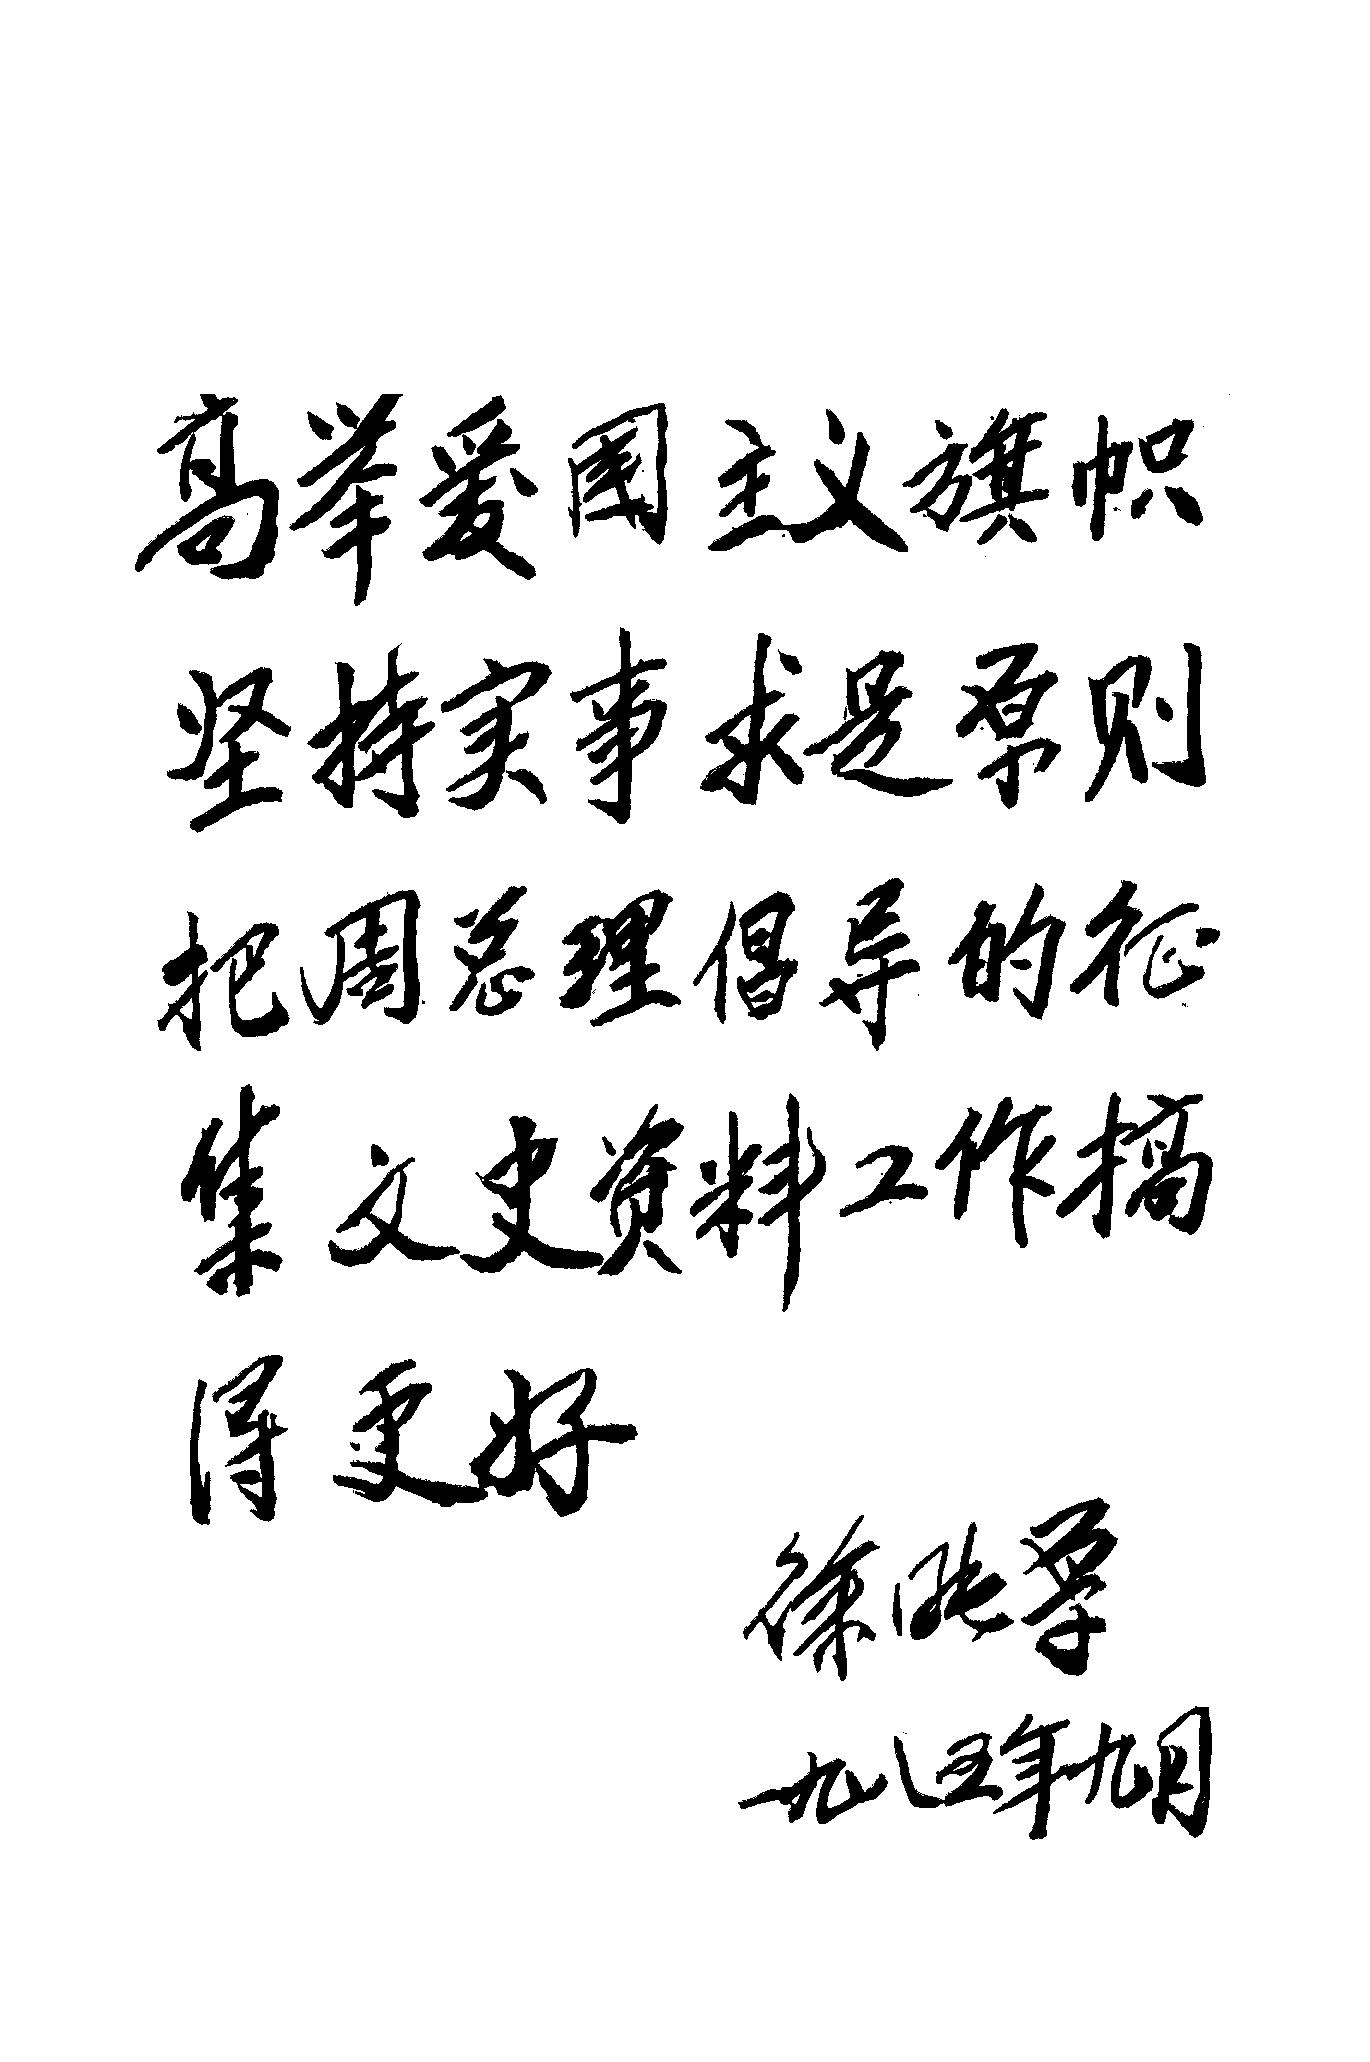 高举爱國主义旗帜
坚持实事求是原则
把周总理倡导的征
集文史资料工作搞
得更好
徐
一九八五年九月